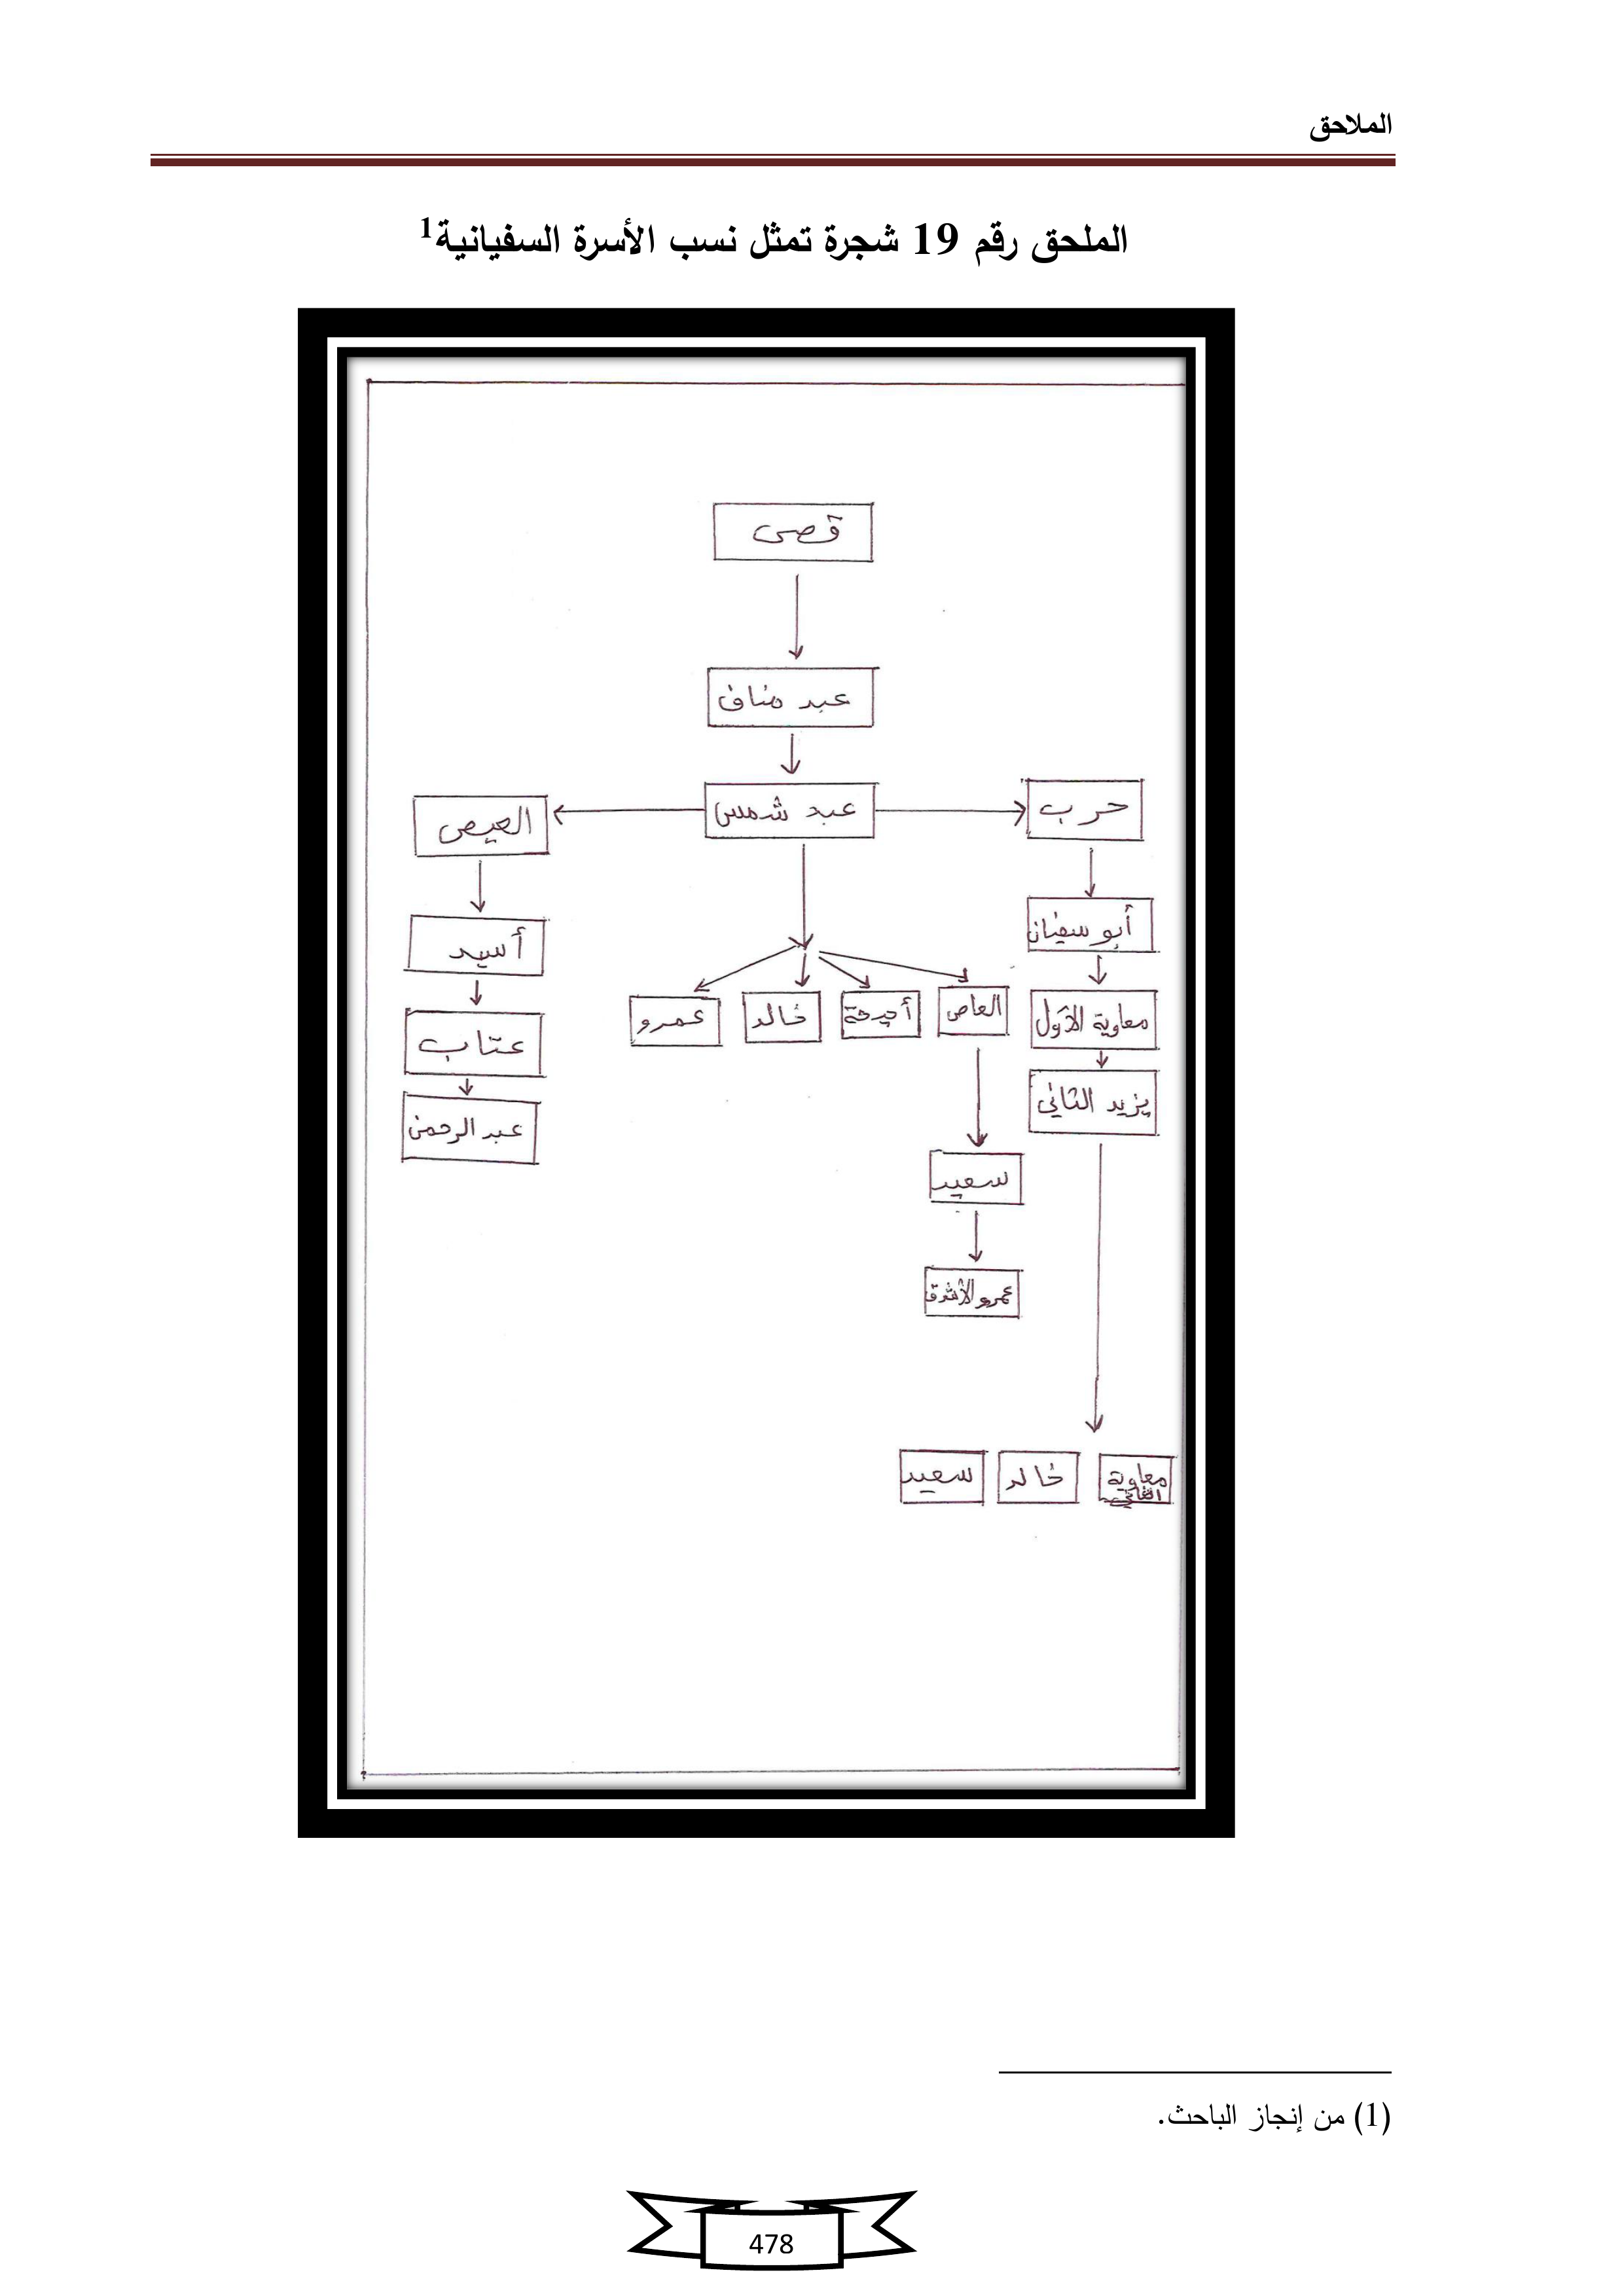 الملاحق
الملحق رقم 19 شجرة تمثل نسب الأسرة السفيانية1
قصى
عبد مناف
حرب
عبد شمس
العيص
أبو سفيان
أسيد
العاص
أحيحة
خالد
عمرو
معاوية الأول
عتاب
يزيد الثاني
عبد الرحمن
سعيد
عمرو الأشدق
معاوية
الثاني
خالد
سعيد
(1) من إنجاز الباحث.
478